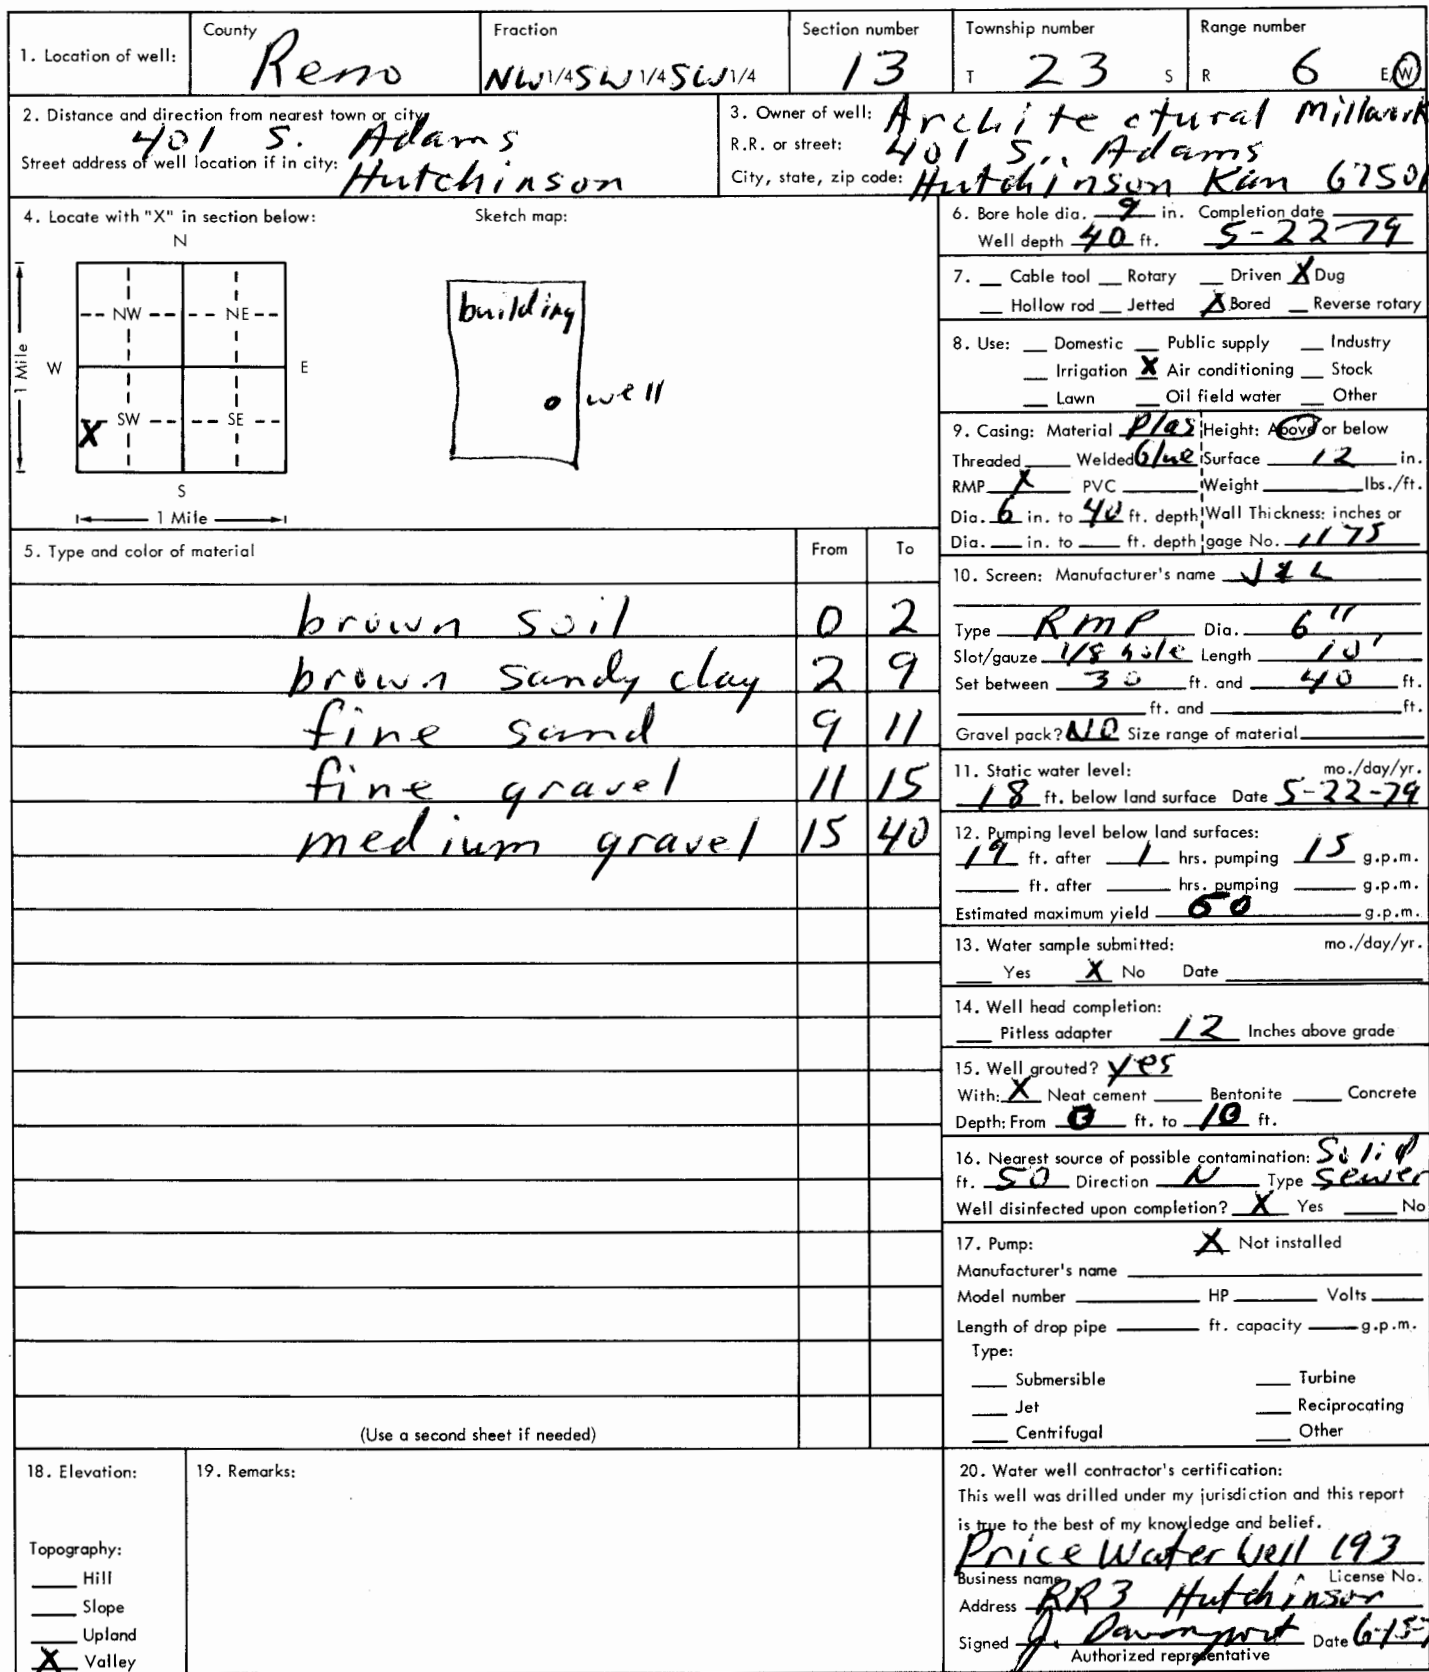 1. Location of well: County Reno Fraction NW 1/4 SW 1/4 SW 1/4 Section number 13 Township number T 23 S Range number R 6 E/W
2. Distance and direction from nearest town or city
401 S. Adams
Street address of well location if in city: Hutchinson
3. Owner of well: Architectural Millwork
R.R. or street: 401 S. Adams
City, state, zip code: Hutchinson Kan 67501
4. Locate with "X" in section below:
N
NW NE
W E
X SW SE
S
1 Mile
1 Mile
Sketch map:
building
well
5. Type and color of material From To
brown soil 0 2
brown sandy clay 2 9
fine sand 9 11
fine gravel 11 15
medium gravel 15 40
(Use a second sheet if needed)
6. Bore hole dia. 9 in. Completion date
Well depth 40 ft. 5-22-79
7. Cable tool Rotary Driven X Dug
Hollow rod Jetted X Bored Reverse rotary
8. Use: Domestic Public supply Industry
Irrigation X Air conditioning Stock
Lawn Oil field water Other
9. Casing: Material Plas Height: Above or below
Threaded Welded Glue Surface 12 in.
RMP X PVC Weight lbs./ft.
Dia. 6 in. to 40 ft. depth Wall Thickness: inches or
Dia. in. to ft. depth gage No. 1175
10. Screen: Manufacturer's name J & L
Type RMP Dia. 6"
Slot/gauze 1/8 hole Length 10'
Set between 30 ft. and 40 ft.
ft. and ft.
Gravel pack? NO Size range of material
11. Static water level: mo./day/yr.
18 ft. below land surface Date 5-22-79
12. Pumping level below land surfaces:
19 ft. after 1 hrs. pumping 15 g.p.m.
ft. after hrs. pumping g.p.m.
Estimated maximum yield 60 g.p.m.
13. Water sample submitted: mo./day/yr.
Yes X No Date
14. Well head completion:
Pitless adapter 12 Inches above grade
15. Well grouted? yes
With: X Neat cement Bentonite Concrete
Depth: From 0 ft. to 10 ft.
16. Nearest source of possible contamination: Solid
ft. 50 Direction N Type sewer
Well disinfected upon completion? X Yes No
17. Pump: X Not installed
Manufacturer's name
Model number HP Volts
Length of drop pipe ft. capacity g.p.m.
Type:
Submersible Turbine
Jet Reciprocating
Centrifugal Other
18. Elevation:
Topography:
Hill
Slope
Upland
X Valley
19. Remarks:
20. Water well contractor's certification:
This well was drilled under my jurisdiction and this report
is true to the best of my knowledge and belief.
Price Water Well 193
Business name License No.
Address RR 3 Hutchinson
Signed J. Davenport Date 6-15-7
Authorized representative